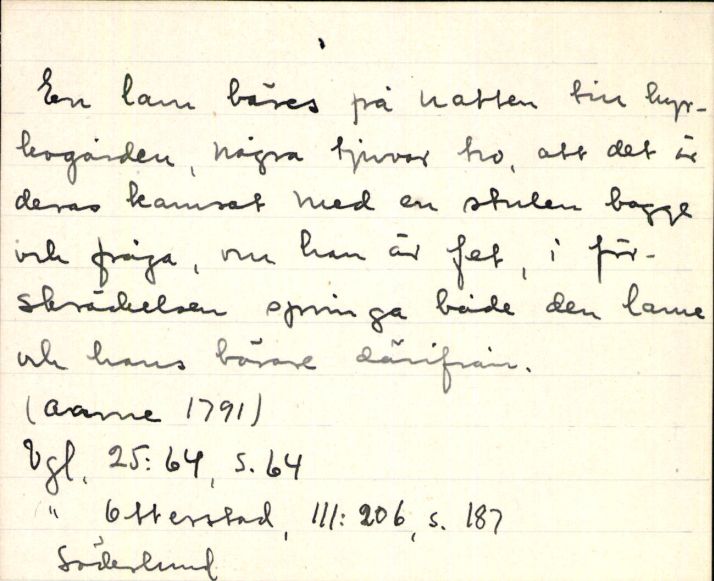 En lam bäres på natten till kyr-
kogården, några tjuvar tro, att det är
deras kamrat med en stulen bagge
och fråga, om han är fet, i för-
skräckelsen springa både den lame
och hans bärare därifrån.
(Aarne 1791)
Vgl, 25:64, s. 64
" Otterstad, III: 206, s. 187
Söderlund